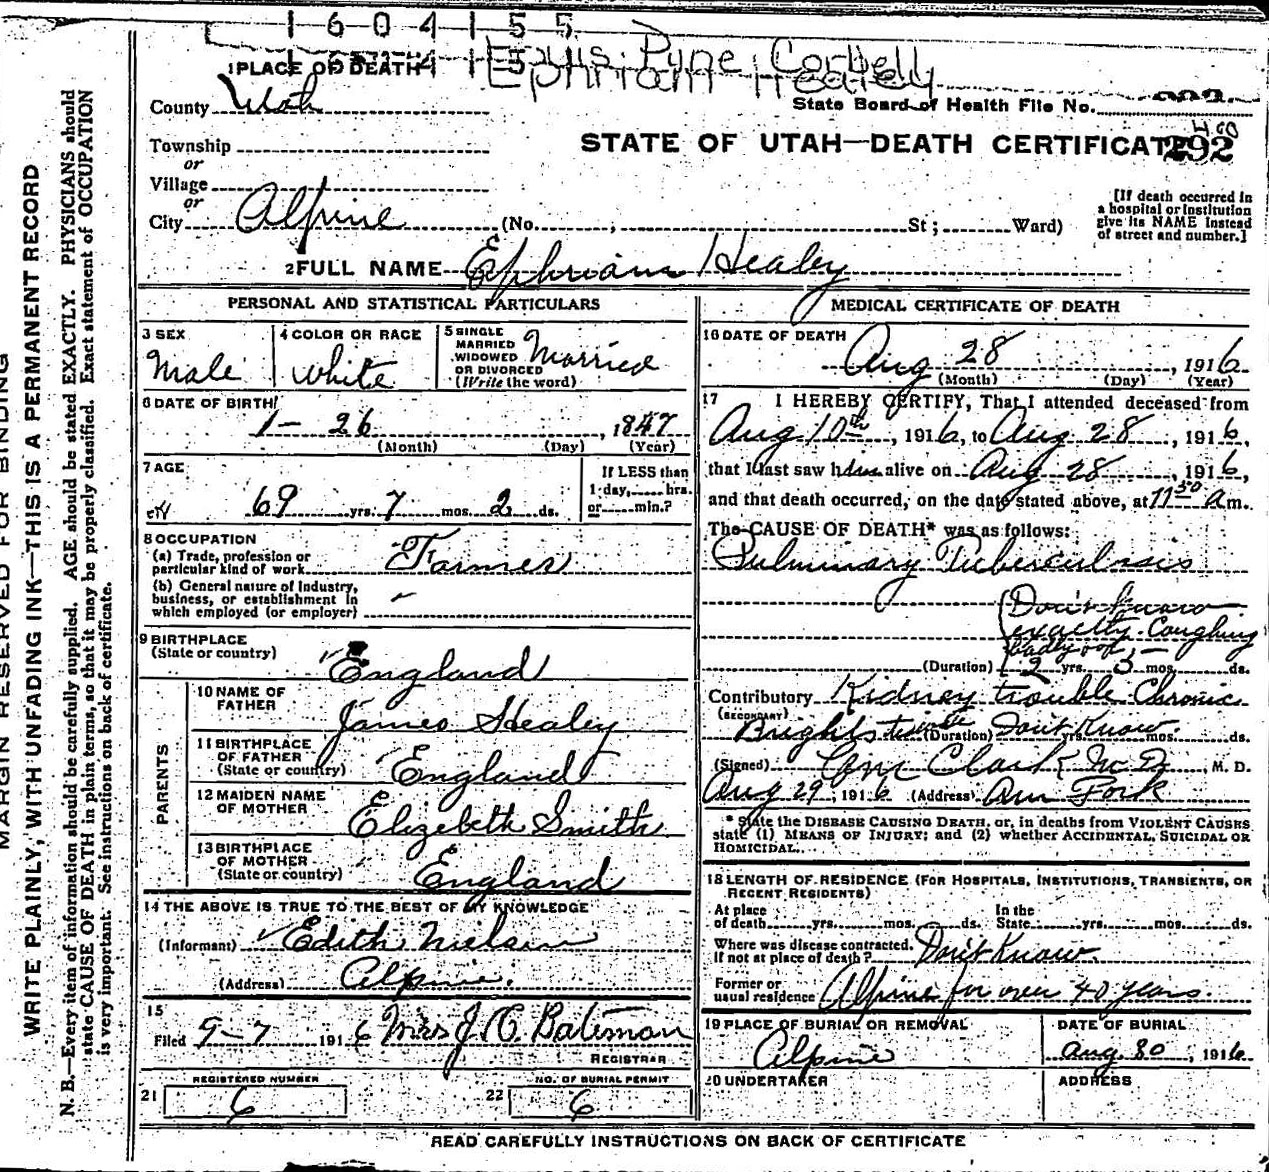 1 6 0 4 1 5 5
Pyne Corbell
Ephriam Healey
1 PLACE OF DEATH
County Utah
State Board of Health File No.
Township
STATE OF UTAH—DEATH CERTIFICATE
292
or
Village
or
City Alpine (No. , St; Ward)
[If death occurred in a hospital or institution give its NAME instead of street and number.]
2 FULL NAME Ephriam Healey
PERSONAL AND STATISTICAL PARTICULARS
3 SEX
Male
4 COLOR OR RACE
White
5 SINGLE
MARRIED
WIDOWED
OR DIVORCED
(Write the word)
Married
6 DATE OF BIRTH
1 - 26, 1847
(Month) (Day) (Year)
7 AGE
69 yrs. 7 mos. 2 ds.
If LESS than
1 day, hrs.
or min.?
8 OCCUPATION
(a) Trade, profession or
particular kind of work Farmer
(b) General nature of industry,
business, or establishment in
which employed (or employer)
9 BIRTHPLACE
(State or country) England
PARENTS
10 NAME OF
FATHER James Healey
11 BIRTHPLACE
OF FATHER
(State or country) England
12 MAIDEN NAME
OF MOTHER Elizebeth Smith
13 BIRTHPLACE
OF MOTHER
(State or country) England
14 THE ABOVE IS TRUE TO THE BEST OF MY KNOWLEDGE
(Informant) Edith Nielsen
(Address) Alpine.
15
Filed 9-7 1916 Mrs J. C. Bateman
REGISTRAR
REGISTERED NUMBER
21 6
NO. OF BURIAL PERMIT
22 6
MEDICAL CERTIFICATE OF DEATH
16 DATE OF DEATH
Aug 28, 1916
(Month) (Day) (Year)
17 I HEREBY CERTIFY, That I attended deceased from
Aug 10th, 1916, to Aug 28, 1916,
that I last saw him alive on Aug 28, 1916,
and that death occurred, on the date stated above, at 11 50 a m.
The CAUSE OF DEATH* was as follows:
Pulminary Tuberculosis
Don't Know
exactly. Coughing
badly
(Duration) 2 yrs. 3 mos. ds.
Contributory Kidney trouble Chronic
(SECONDARY)
Brights (Duration) Don't Know yrs. mos. ds.
(Signed) Clark M.D., M. D.
Aug 29, 1916 (Address) Am Fork
* State the DISEASE CAUSING DEATH, or, in deaths from VIOLENT CAUSES
state (1) MEANS OF INJURY; and (2) whether ACCIDENTAL, SUICIDAL OR
HOMICIDAL.
18 LENGTH OF RESIDENCE (FOR HOSPITALS, INSTITUTIONS, TRANSIENTS, OR
RECENT RESIDENTS)
At place
of death yrs. mos. ds.
In the
State yrs. mos. ds.
Where was disease contracted,
If not at place of death? Don't Know.
Former or
usual residence Alpine for over 40 years.
19 PLACE OF BURIAL OR REMOVAL
Alpine
DATE OF BURIAL
Aug. 30, 1916
20 UNDERTAKER
ADDRESS
READ CAREFULLY INSTRUCTIONS ON BACK OF CERTIFICATE
MARGIN RESERVED FOR BINDING
WRITE PLAINLY, WITH UNFADING INK—THIS IS A PERMANENT RECORD
N. B.—Every item of information should be carefully supplied. AGE should be stated EXACTLY. PHYSICIANS should
state CAUSE OF DEATH in plain terms, so that it may be properly classified. Exact statement of OCCUPATION
is very important. See instructions on back of certificate.